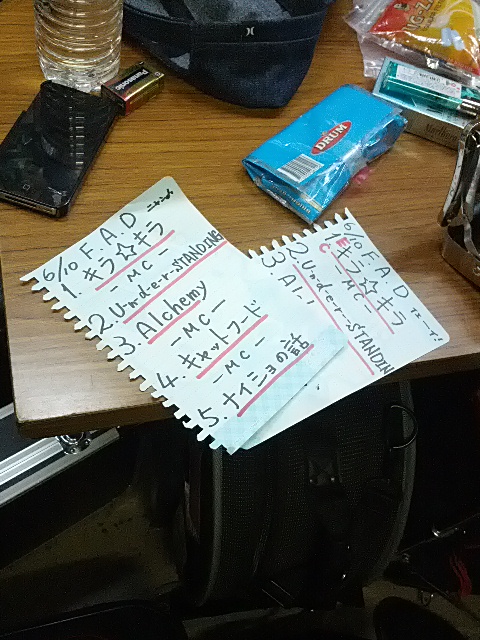 Panasonic
DRUM
6/10 F.A.D
1. キラ☆キラ
-MC-
2. Under-STANDING
3. Alchemy
-MC-
4. キャットフード
-MC-
5. ナイショの話
6/10 F.A.D
1. キラ☆キラ
MC
2. Under-STANDIN
3. Al